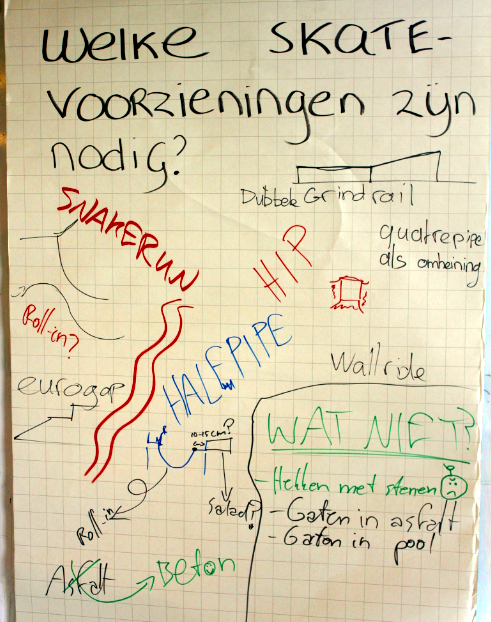 WELKE SKATE-
VOORZIENINGEN ZIJN
NODIG?
Dubbele Grindrail
SNAKERUN
quaterpipe
als omheining
HIP
Roll-in?
HALFPIPE
Wallride
eurogap
10-15cm?
WAT NIET?
- Hekken met stenen
- Gaten in asfalt
- Gaten in pool
Salad?
Roll-in
Asfalt
Beton